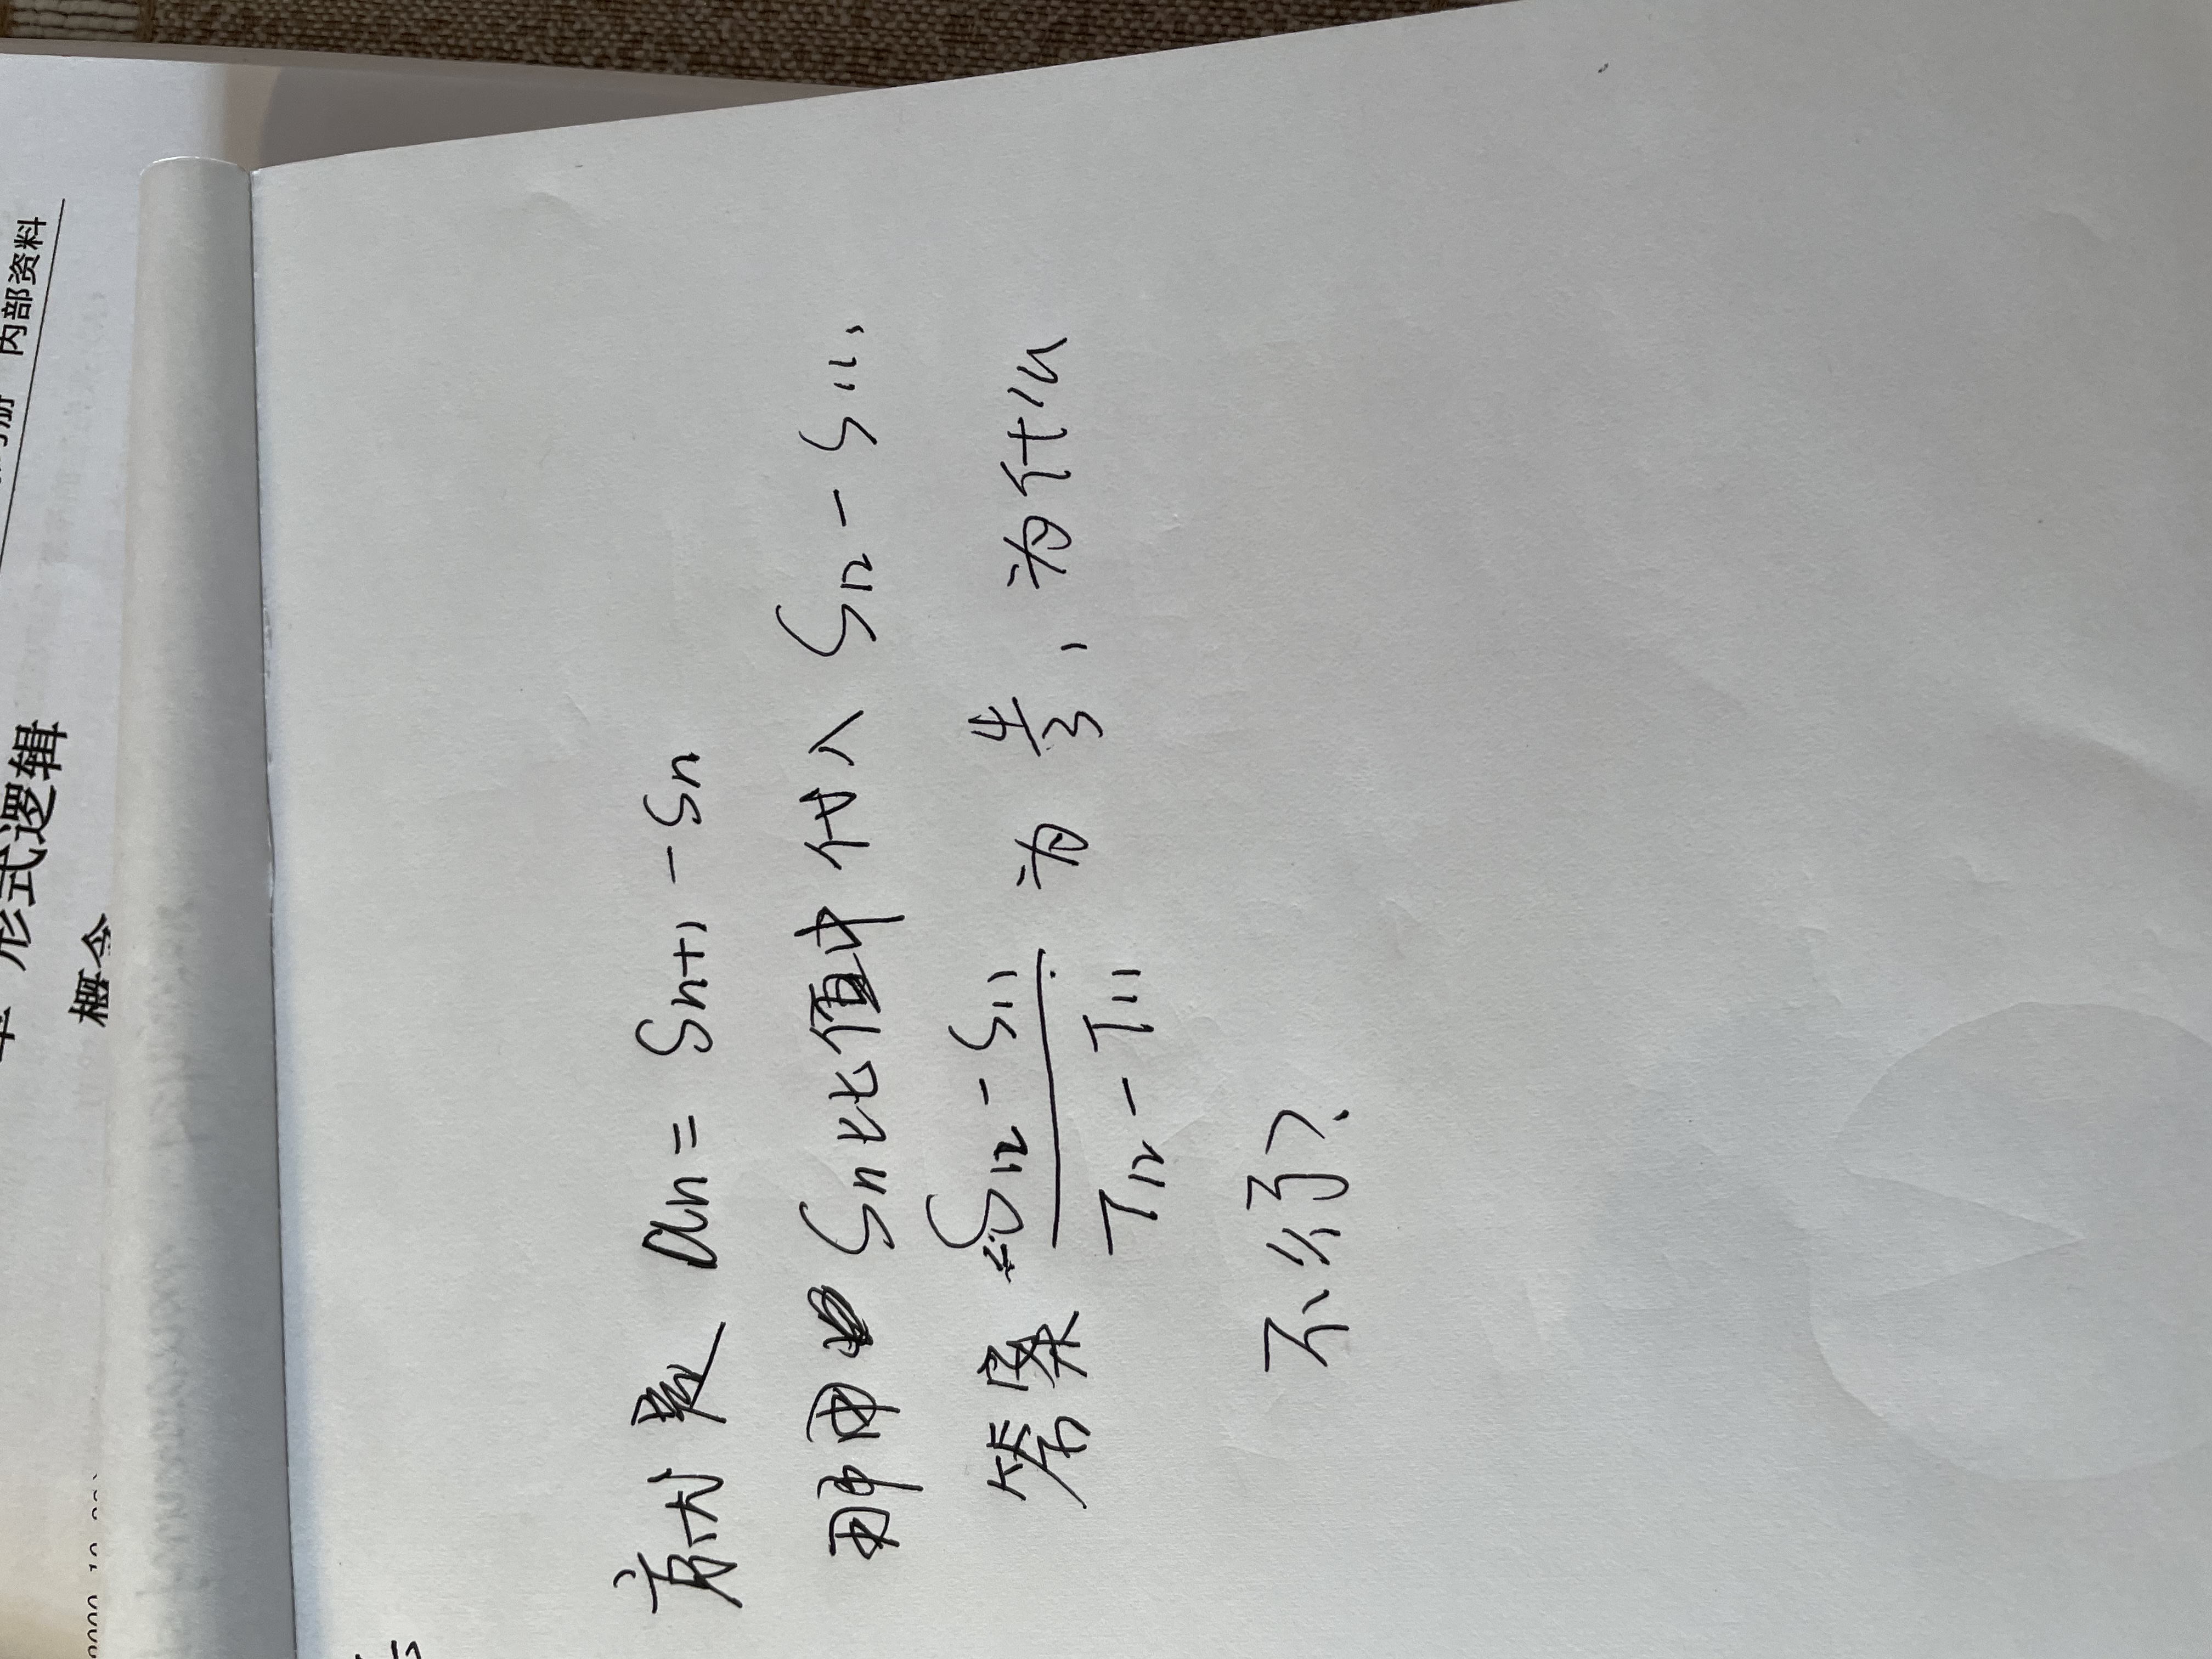 形式逻辑
内部资料
概念
就是 an = Sn+1 - Sn
那用 Sn比值中 代入 S12 - S11,
答案 S12 - S11 / T12 - T11 为 4/3, 为什么
不行?